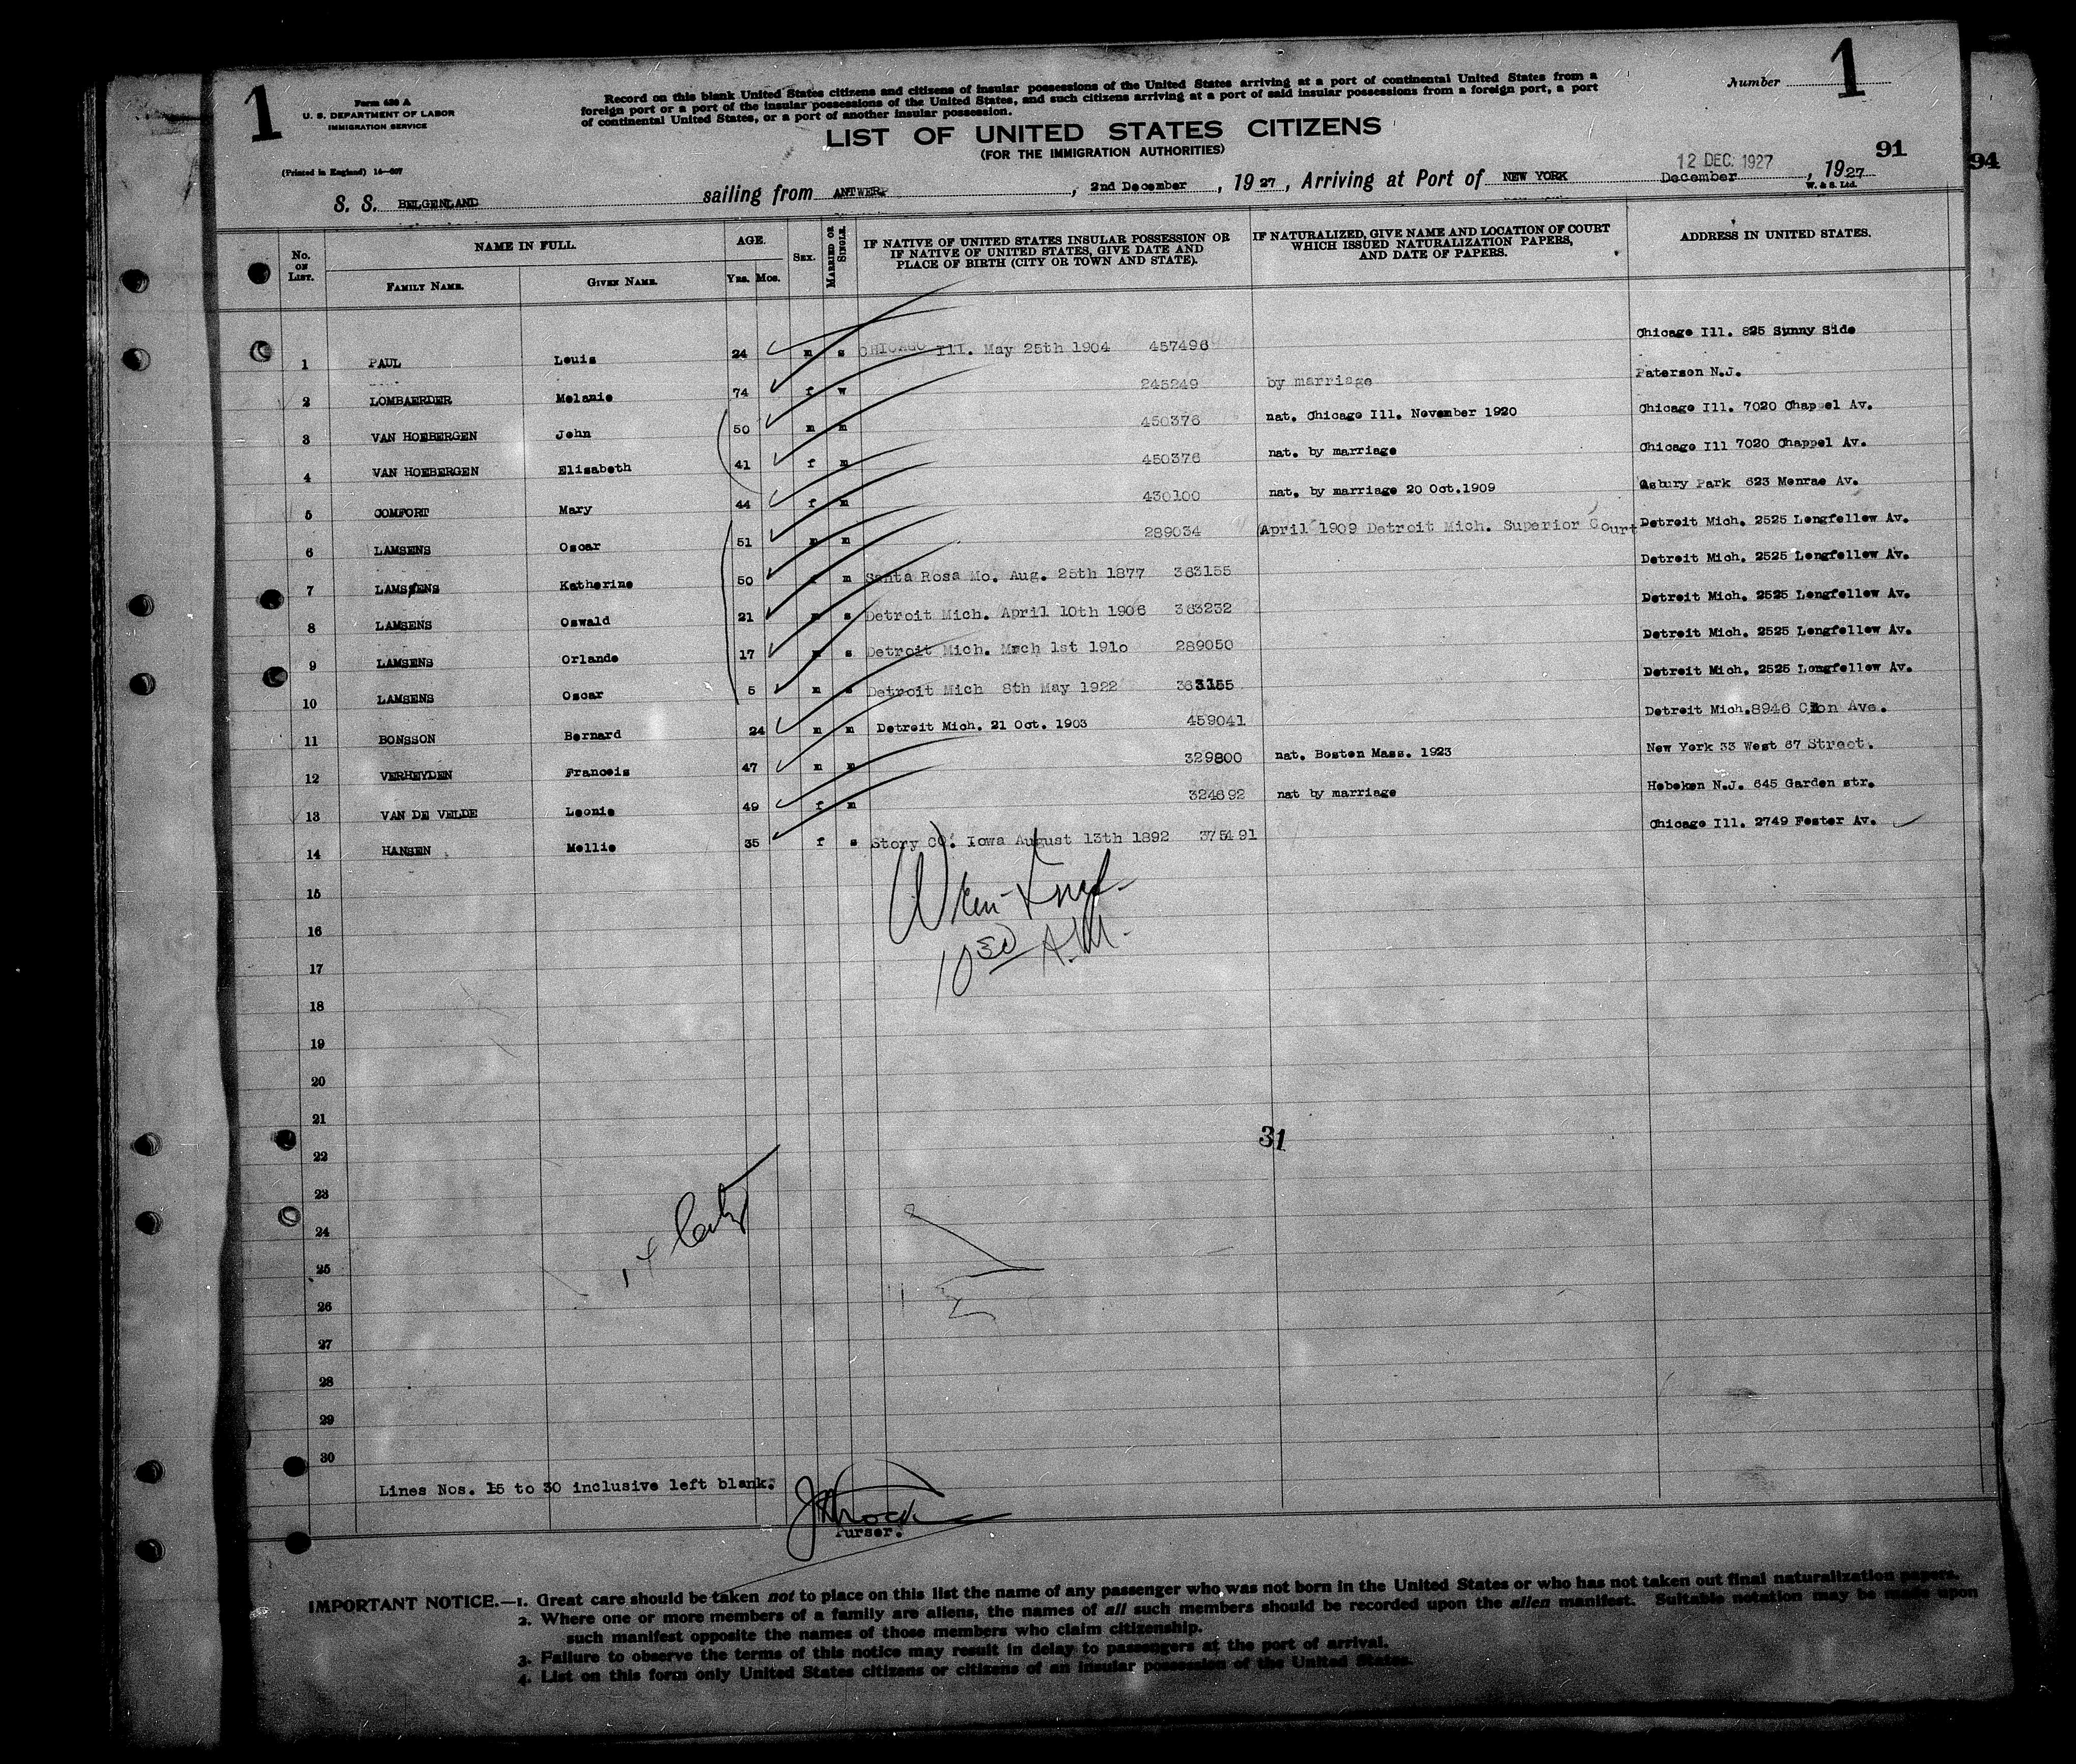 1
Form 630 A
U. S. DEPARTMENT OF LABOR
IMMIGRATION SERVICE
(Printed in England)
Record on this blank United States citizens and citizens of insular possessions of the United States arriving at a port of continental United States from a
foreign port or a port of the insular possessions of the United States, and such citizens arriving at a port of said insular possessions from a foreign port, a port
of continental United States, or a port of another insular possession.
Number 1
LIST OF UNITED STATES CITIZENS
(FOR THE IMMIGRATION AUTHORITIES)
91
94
12 DEC. 1927
S. S. BELGENLAND sailing from ANTWERP, 2nd December, 1927, Arriving at Port of NEW YORK December, 1927
W. & S. Ltd.
No. ON LIST. NAME IN FULL. AGE. SEX. MARRIED OR SINGLE. IF NATIVE OF UNITED STATES INSULAR POSSESSION OR IF NATIVE OF UNITED STATES, GIVE DATE AND PLACE OF BIRTH (CITY OR TOWN AND STATE). IF NATURALIZED, GIVE NAME AND LOCATION OF COURT WHICH ISSUED NATURALIZATION PAPERS, AND DATE OF PAPERS. ADDRESS IN UNITED STATES.
FAMILY NAME. GIVEN NAME. YRS. MOS.
1 PAUL Louis 24 m s CHICAGO Ill. May 25th 1904 457496 Chicago Ill. 825 Sunny Side
2 LOMBAERDER Melanie 74 f w 245249 by marriage Paterson N.J.
3 VAN HOEBERGEN John 50 m m 450376 nat. Chicago Ill. November 1920 Chicago Ill. 7020 Chappel Av.
4 VAN HOEBERGEN Elisabeth 41 f m 450376 nat. by marriage Chicago Ill 7020 Chappel Av.
5 COMFORT Mary 44 f m 430100 nat. by marriage 20 Oct.1909 Asbury Park 623 Monrae Av.
6 LAMSENS Oscar 51 m m 289034 April 1909 Detroit Mich. Superior Court Detroit Mich. 2525 Longfellow Av.
7 LAMSSENS Katherine 50 f m Santa Rosa Mo. Aug. 25th 1877 363155 Detroit Mich. 2525 Longfellow Av.
8 LAMSENS Oswald 21 m s Detroit Mich. April 10th 1906 363232 Detroit Mich. 2525 Longfellow Av.
9 LAMSENS Orlando 17 m s Detroit Mich. Mrch 1st 191o 289050 Detroit Mich. 2525 Longfellow Av.
10 LAMSENS Oscar 5 m s Detroit Mich 8th May 1922 363155 Detroit Mich. 2525 Longfellow Av.
11 BONSSON Bernard 24 m m Detroit Mich. 21 Oct. 1903 459041 Detroit Mich.8946 Ave.
12 VERHEYDEN Francois 47 m m 329800 nat. Boston Mass. 1923 New York 33 West 67 Street.
13 VAN DE VELDE Leonie 49 f m 324692 nat by marriage Hoboken N.J. 645 Garden str.
14 HANSEN Mellie 35 f s Story CO. Iowa August 13th 1892 375491 Chicago Ill. 2749 Foster Av.
15
16
10 30 A.M.
17
18
19
20
21
31
22
23
24
25
26
27
28
29
30
Lines Nos. 15 to 30 inclusive left blank.
Purser.
IMPORTANT NOTICE.—1. Great care should be taken not to place on this list the name of any passenger who was not born in the United States or who has not taken out final naturalization papers.
2. Where one or more members of a family are aliens, the names of all such members should be recorded upon the alien manifest. Suitable notation may be made upon
such manifest opposite the names of those members who claim citizenship.
3. Failure to observe the terms of this notice may result in delay to passengers at the port of arrival.
4. List on this form only United States citizens or citizens of an insular possession of the United States.